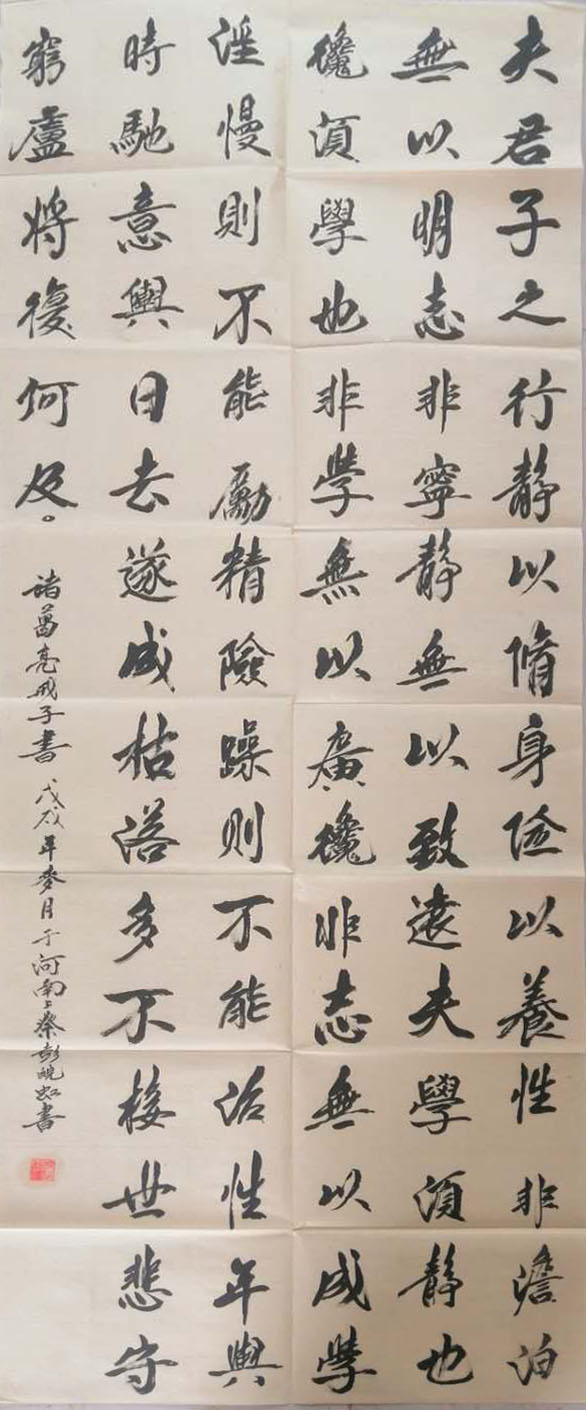 夫君子之行静以脩身俭以養性非澹泊
無以明志非寧静無以致遠夫學須静也
纔須學也非學無以廣纔非志無以成學
淫慢則不能勵精險躁則不能治性年與
時馳意與日去遂成枯落多不接世悲守
窮廬將復何及。
諸葛亮戒子書 戊戌年麥月于河南上蔡彭晓虹書